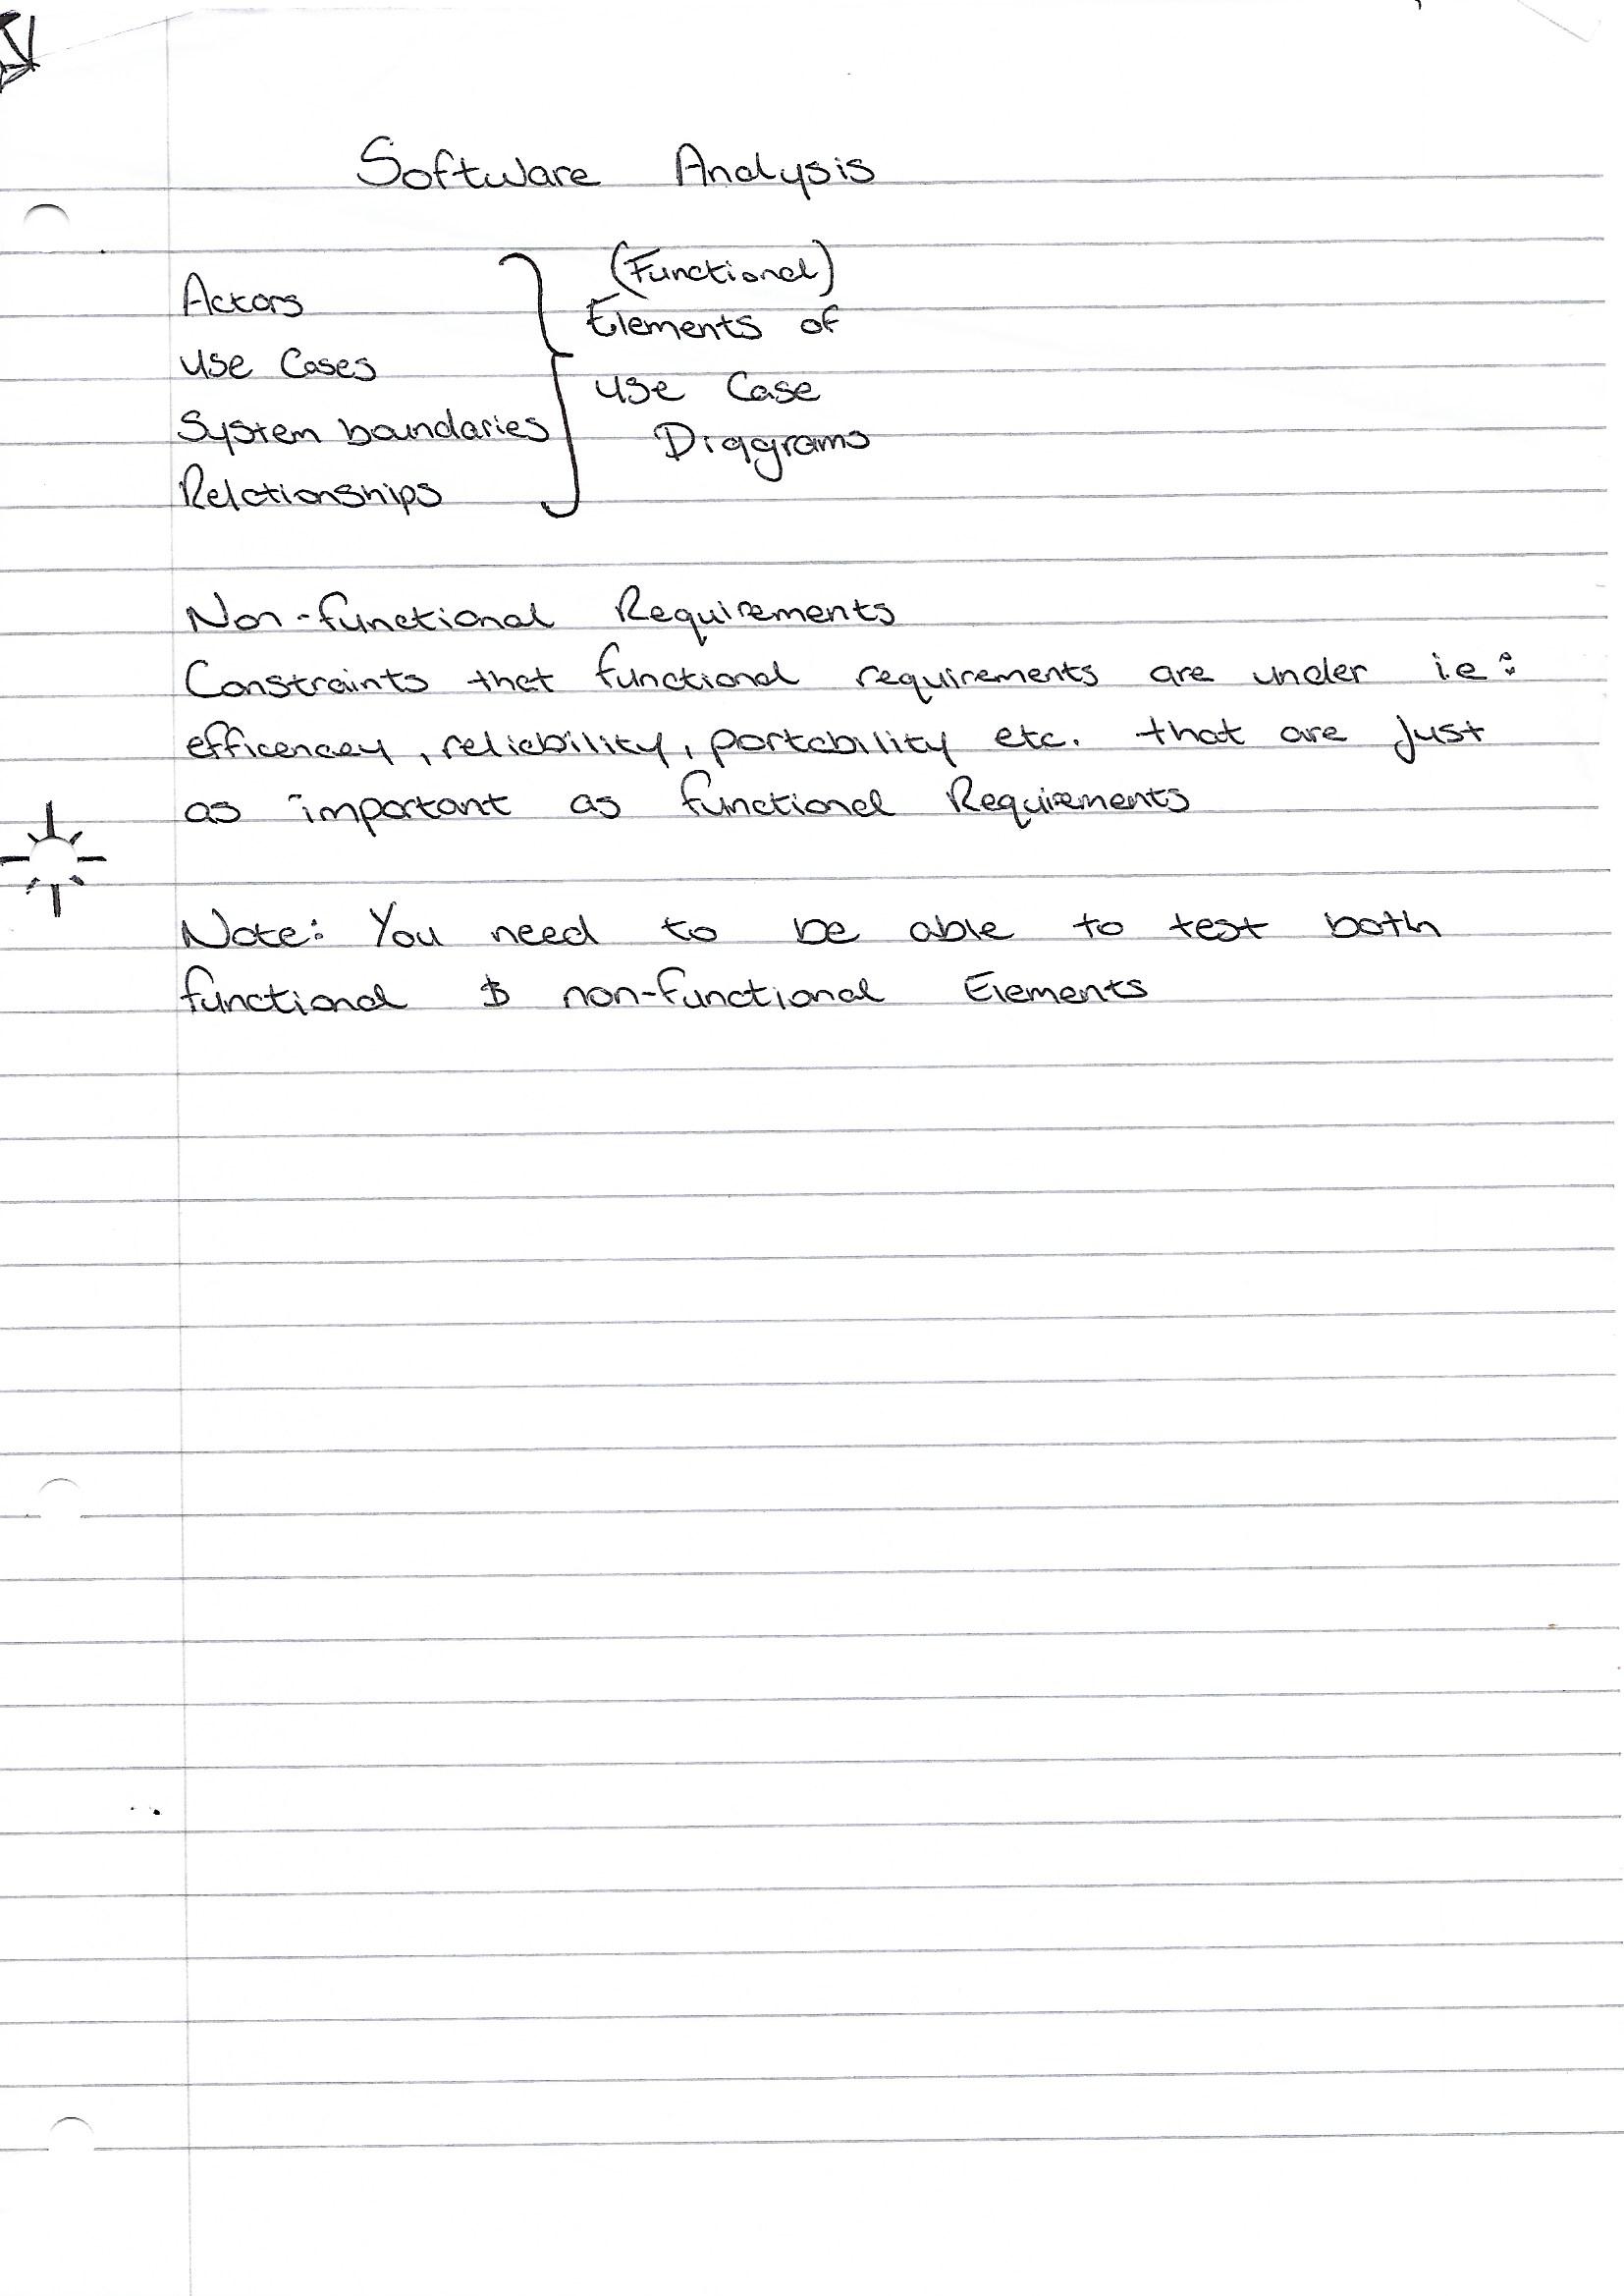 Software Analysis
Actors
Use Cases
System boundaries
Relationships
(Functional)
Elements of
Use Case
Diagrams
Non-functional Requirements
Constraints that functional requirements are under i.e:
efficencey, reliability, portability etc. that are just
as important as functional Requirements
Note: You need to be able to test both
functional & non-functional Elements